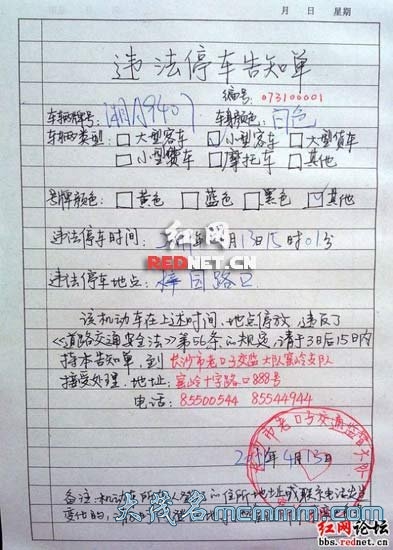 月 日 星期
违法停车告知单
编号: 073100001
车辆牌号: 湘A9407 车身颜色: 白色
车辆类型: □大型客车 □小型客车 □大型货车
□小型货车 □摩托车 □其他
号牌颜色: □黄色 □蓝色 □黑色 ☑其他
违法停车时间: 年 月13日15时01分
违法停车地点: 梓园路口
该机动车在上述时间、地点停放,违反了
《道路交通安全法》第56条的规定,请于3日后15日内
持本告知单,到长沙市老口子交监大队窝岭支队
接受处理。地址: 窝岭十字路口888号
电话: 85500544 85544944
市老口子交通监督大队
2011年4月13日
备注: 机动车所有人登记的住所地址或联系电话发生
变化的,
红网
REDNET.CN
大茂名mcmmm.com
红网论坛
bbs.rednet.cn